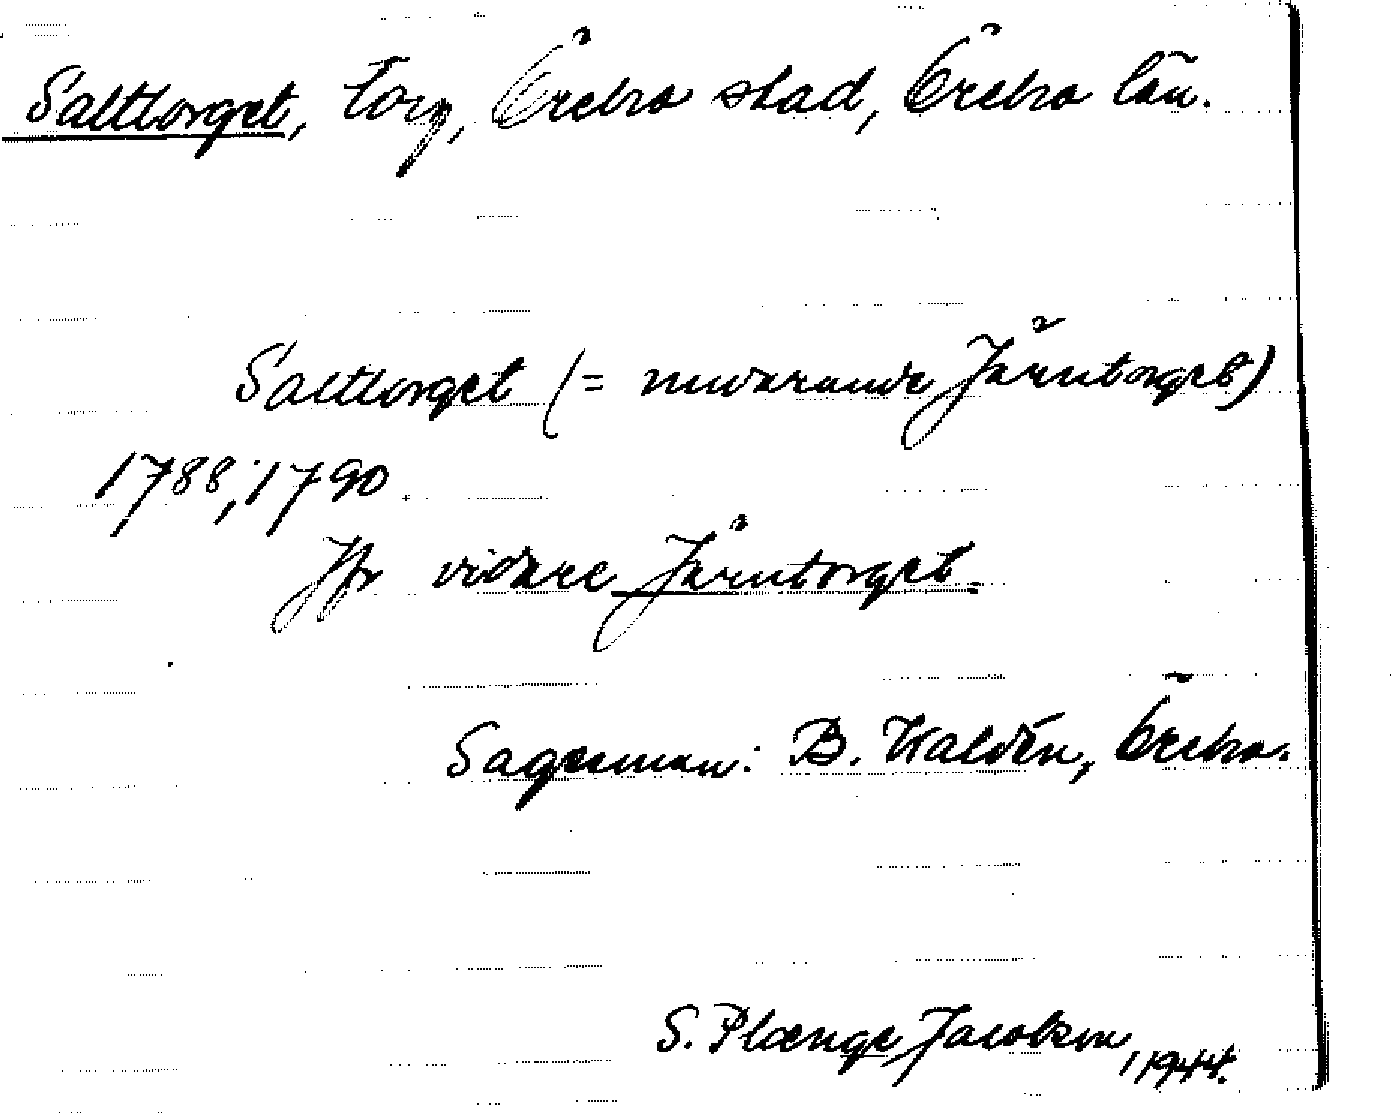 Salttorget, torg, Örebro stad, Örebro län.
Salttorget (= nuvarande Järntorget)
1788; 1790.
Jfr vidare Järntorget.
Sagesman: B. Waldén, Örebro.
S. Plænge Jacobson, 1944.